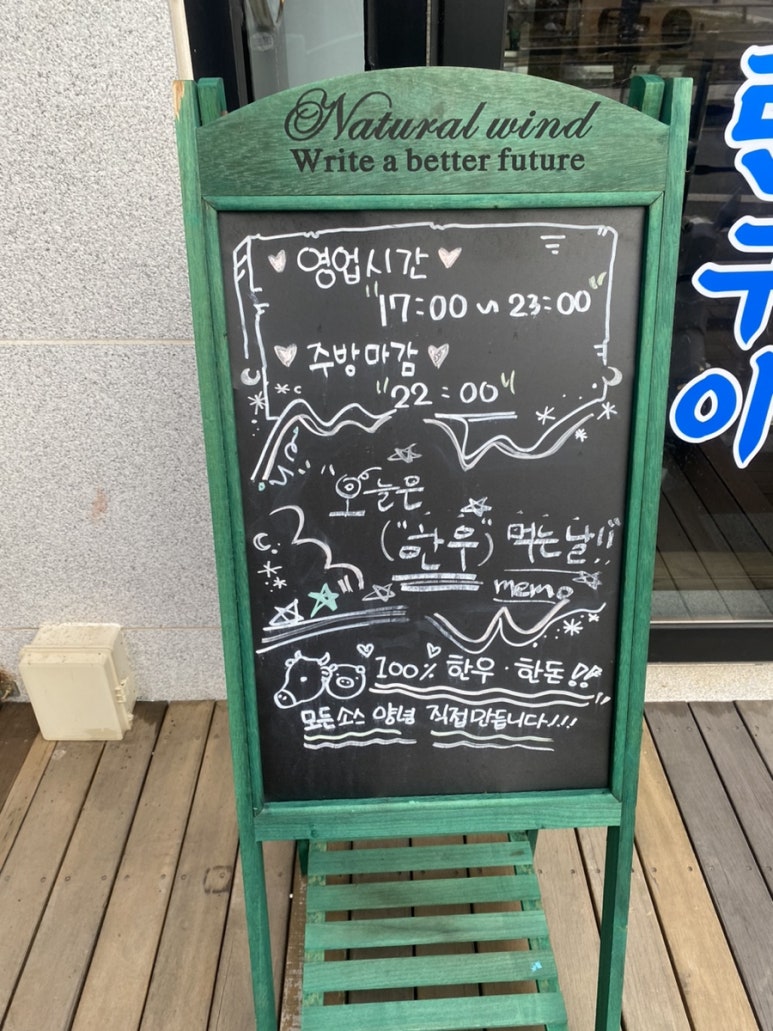 Natural wind
Write a better future
영업시간
"17:00 ~ 23:00"
주방마감
"22:00"
"오늘은
("한우") 먹는날!!"
memo
100% 한우·한돈!!
모든소스 양념 직접만듭니다!!!
우
이